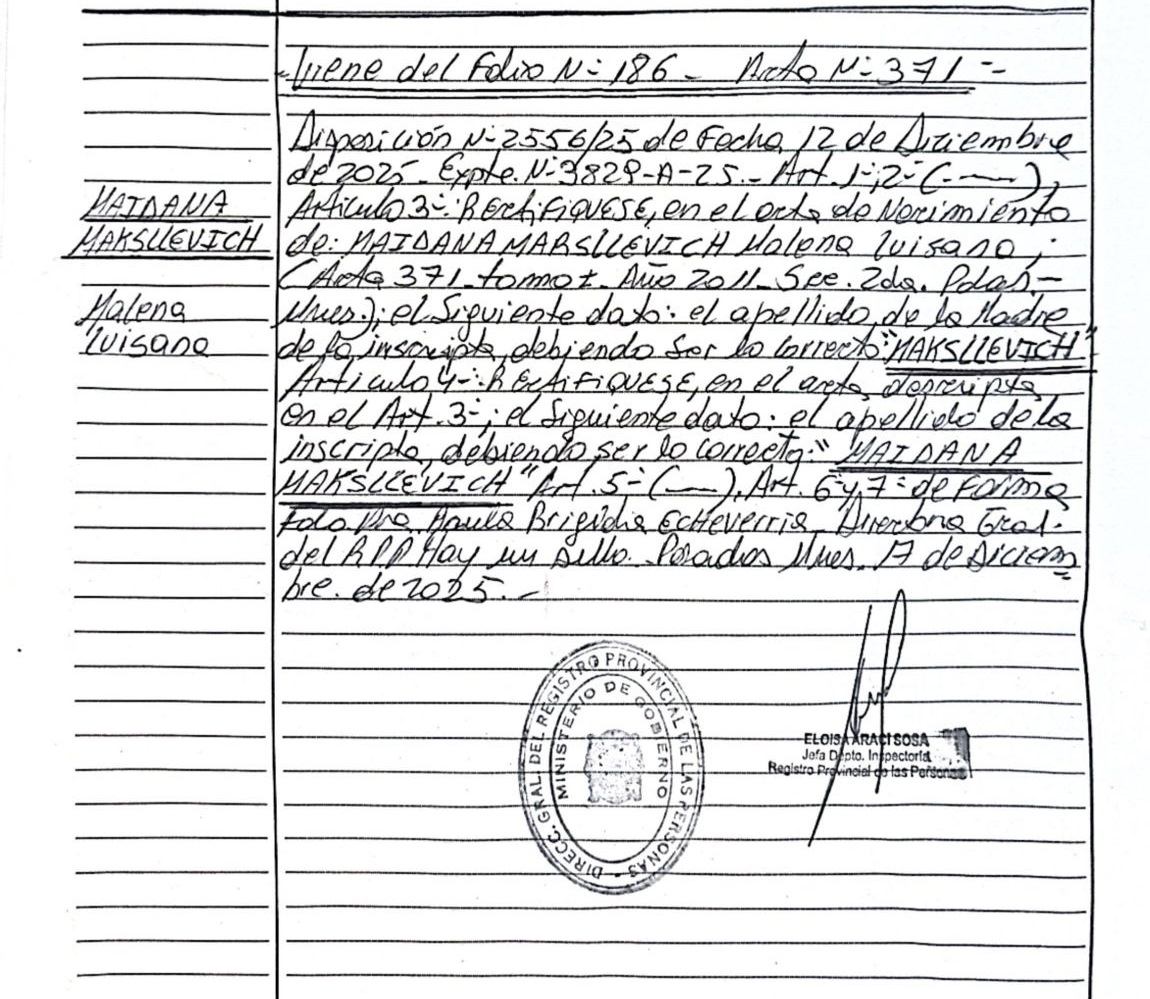 Viene del Folio Nº 186 - Acta Nº 371 -
MAIDANA
MAKSLLEVICH
Malena
Luisana
Disposición Nº 2556/25 de Fecha 12 de Diciembre
de 2025 - Expte. Nº 3829-A-25 - Art. 1º, 2º (.——),
Artículo 3º: RECtiFiQUESE, en el acta de Nacimiento
de: MAIDANA MARSLLEVICH Malena Luisana ;
(Acta 371 - tomo I - Año 2011 - Sec. 2da. Pdas.-
Mnes.); el Siguiente dato: el apellido de la Madre
de la inscripta, debiendo Ser lo correcto "MAKSLLEVICH"
Artículo 4º: RECtiFiQUESE, en el acta descripta
en el Art. 3º; el Siguiente dato: el apellido de la
inscripta, debiendo ser lo correcto: "MAIDANA
MAKSLLEVICH" Art. 5º (.——), Art. 6º y 7º de Forma
Fdo Dra. Paula Brigidia Echeverria - Directora Gral.
del RPP Hay un Sello. Posadas Mnes. 17 de Diciem
bre. de 2025. -
DIRECC. GRAL. DEL REGISTRO PROVINCIAL DE LAS PERSONAS
MINISTERIO DE GOBIERNO
ELOISA ARACI SOSA
Jefa Dpto. Inspectoría
Registro Provincial de las Personas